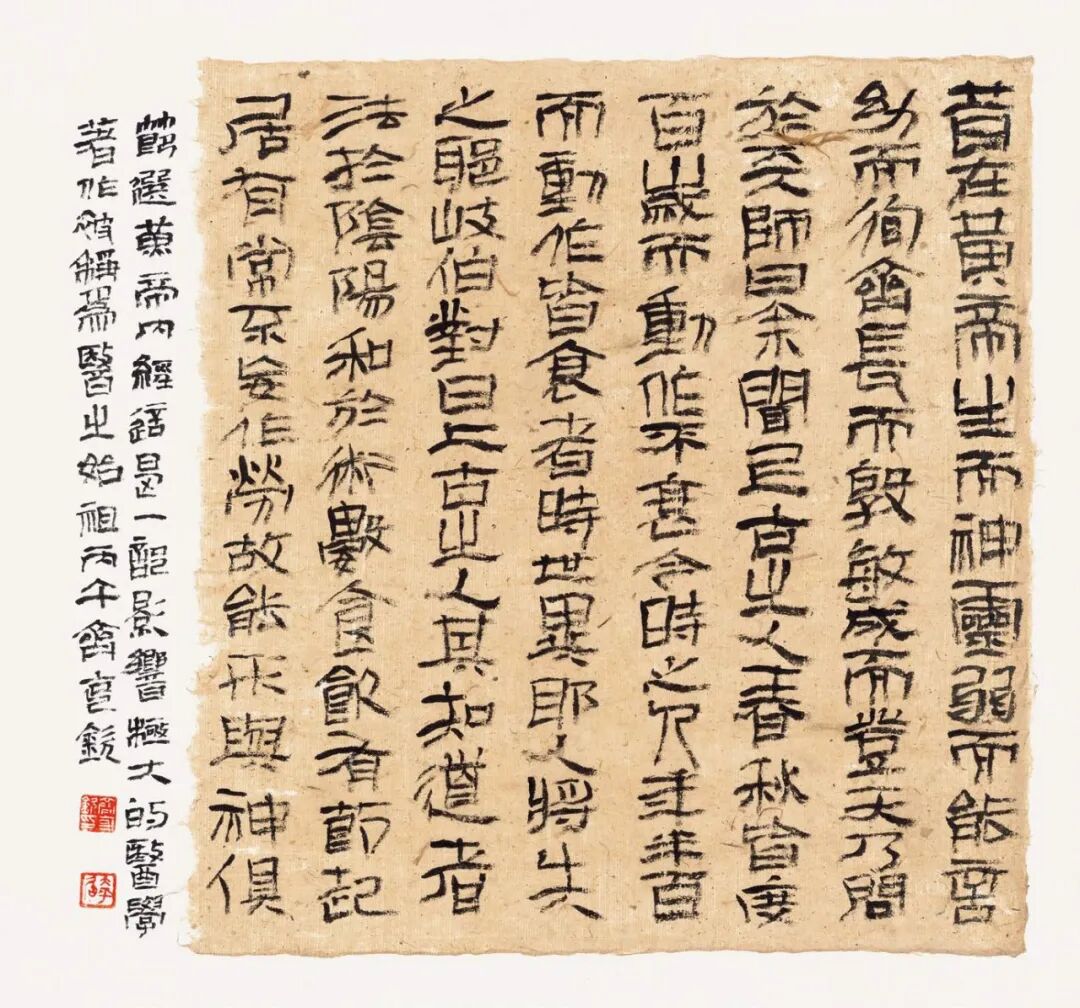 昔在黃帝生而神靈弱而能言
幼而徇齊長而敦敏成而登天乃問
於天師曰余聞上古之人春秋皆度
百歲而動作不衰今時之人年半百
而動作皆衰者時世異耶人將失
之耶岐伯對曰上古之人其知道者
法於陰陽和於術數食飲有節起
居有常不妄作勞故能形與神俱
節選黃帝內經這是一部影響極大的醫學
著作被稱為醫之始祖丙午